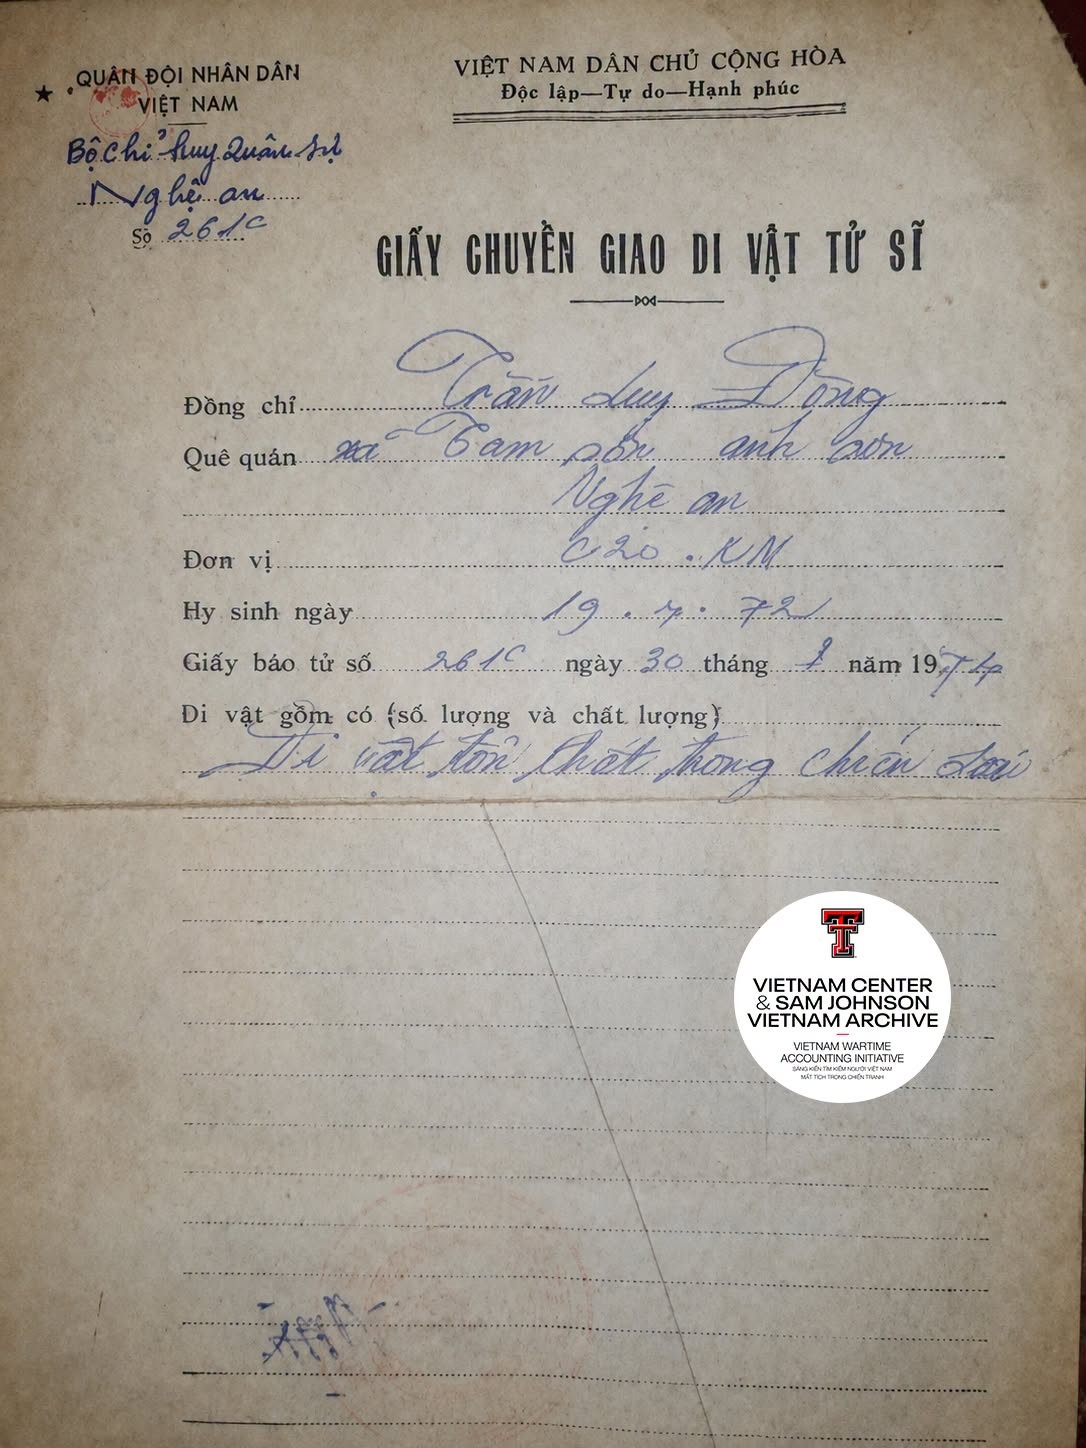 QUÂN ĐỘI NHÂN DÂN
VIỆT NAM
Bộ chỉ huy Quân sự
Nghệ an
Số 261c
VIỆT NAM DÂN CHỦ CỘNG HÒA
Độc lập—Tự do—Hạnh phúc
GIẤY CHUYỀN GIAO DI VẬT TỬ SĨ
Đồng chí Trần Duy Đông
Quê quán xã Tam sơn anh sơn
Nghệ an
Đơn vị C20 . KM
Hy sinh ngày 19 . 7 . 72
Giấy báo tử số 261c ngày 30 tháng năm 1974
Di vật gồm có (số lượng và chất lượng)
Di vật tổn thất trong chiến đấu
VIETNAM CENTER
& SAM JOHNSON
VIETNAM ARCHIVE
VIETNAM WARTIME
ACCOUNTING INITIATIVE
SÁNG KIẾN TÌM KIẾM NGƯỜI VIỆT NAM
MẤT TÍCH TRONG CHIẾN TRANH